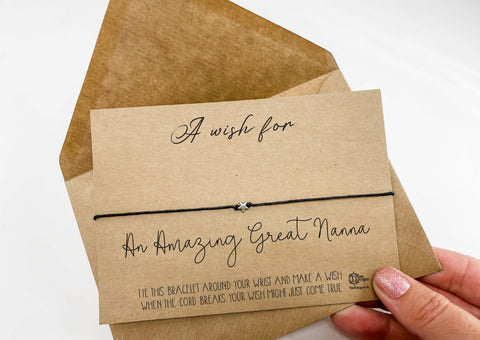 A wish for
An Amazing Great Nanna
TIE THIS BRACELET AROUND YOUR WRIST AND MAKE A WISH
WHEN THE CORD BREAKS YOUR WISH MIGHT JUST COME TRUE